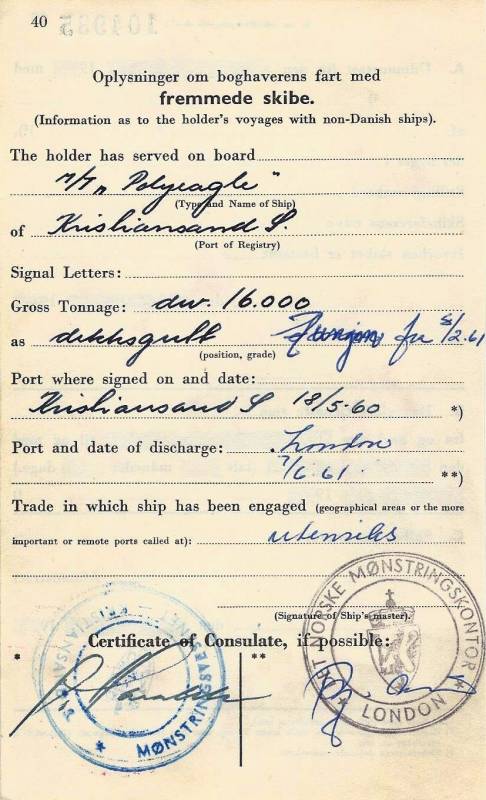 40
Oplysninger om boghaverens fart med
fremmede skibe.
(Information as to the holder's voyages with non-Danish ships).
The holder has served on board
M/T „Polyeagle"
(Type and Name of Ship)
of Kristiansand S.
(Port of Registry)
Signal Letters:
Gross Tonnage: dw. 16.000
as dekksgutt fra 5/2.61
(position, grade)
Port where signed on and date:
Kristiansand S 18/5-60 *)
Port and date of discharge: London
7/6.61. **)
Trade in which ship has been engaged (geographical areas or the more
important or remote ports called at): utenriks
(Signature of Ship's master).
Certificate of Consulate, if possible:
* **
MØNSTRINGSVE
NORSKE MØNSTRINGSKONTOR
* LONDON *